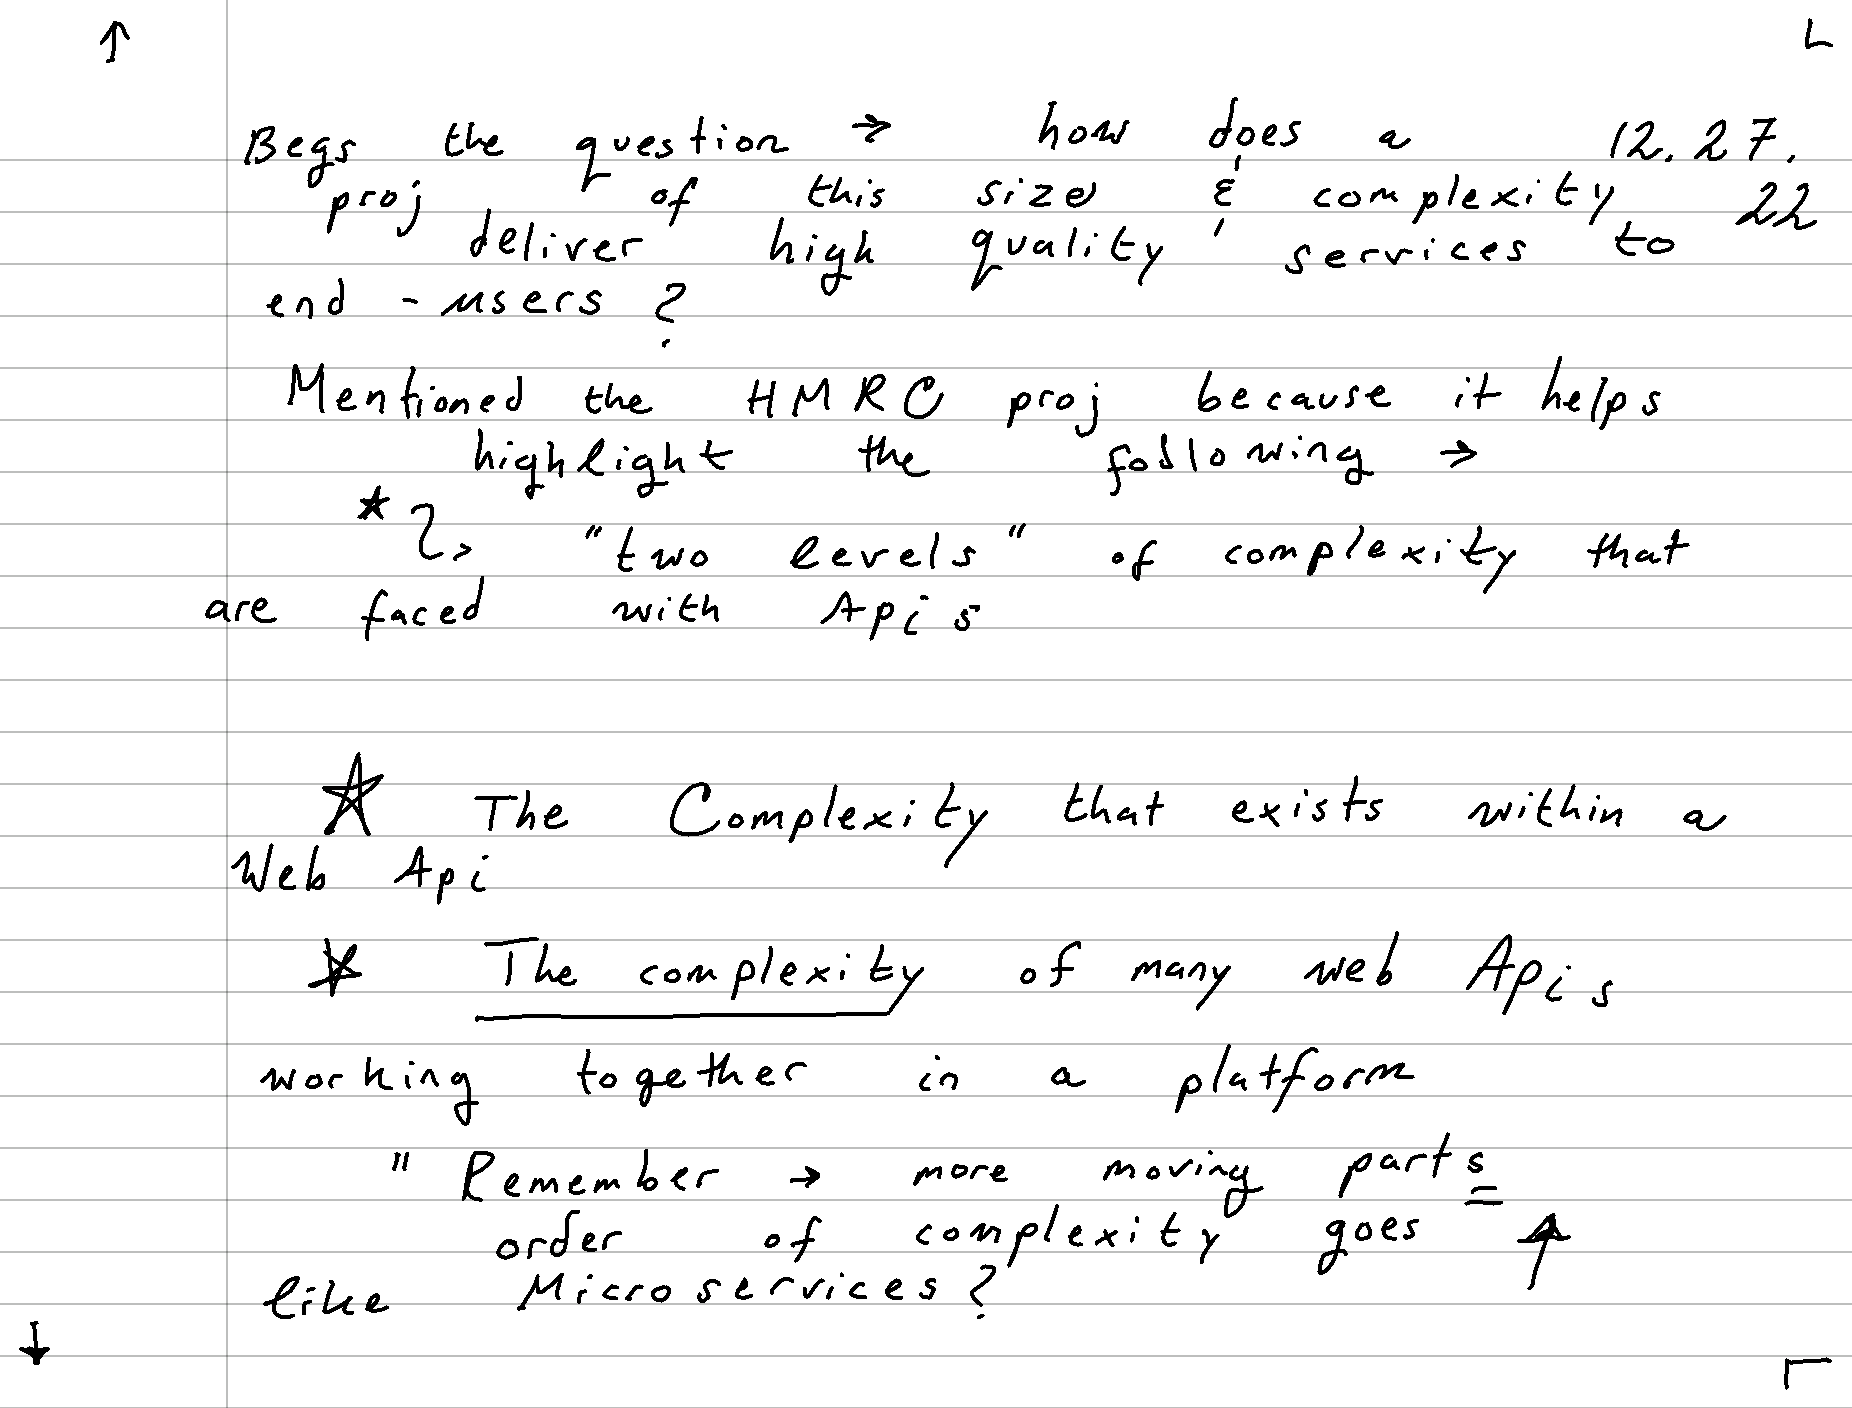 Begs the question → how does a 12.27.
proj of this size & complexity 22
deliver high quality services to
end - users ?
Mentioned the HMRC proj because it helps
highlight the following →
* "two levels" of complexity that
are faced with Apis
☆ The Complexity that exists within a
Web Api
☆ The complexity of many web Apis
working together in a platform
" Remember → more moving parts
order of complexity goes ↑
like Microservices?